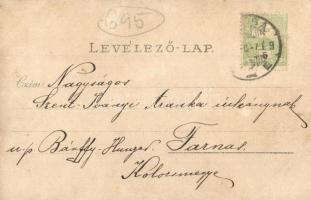 695
LEVELEZŐ-LAP.
Czim: Nagyságos
Szent-Iványi Aranka úrleánynak
u/p Bánffy-Hunyad Farnas.
Kolozsmegye